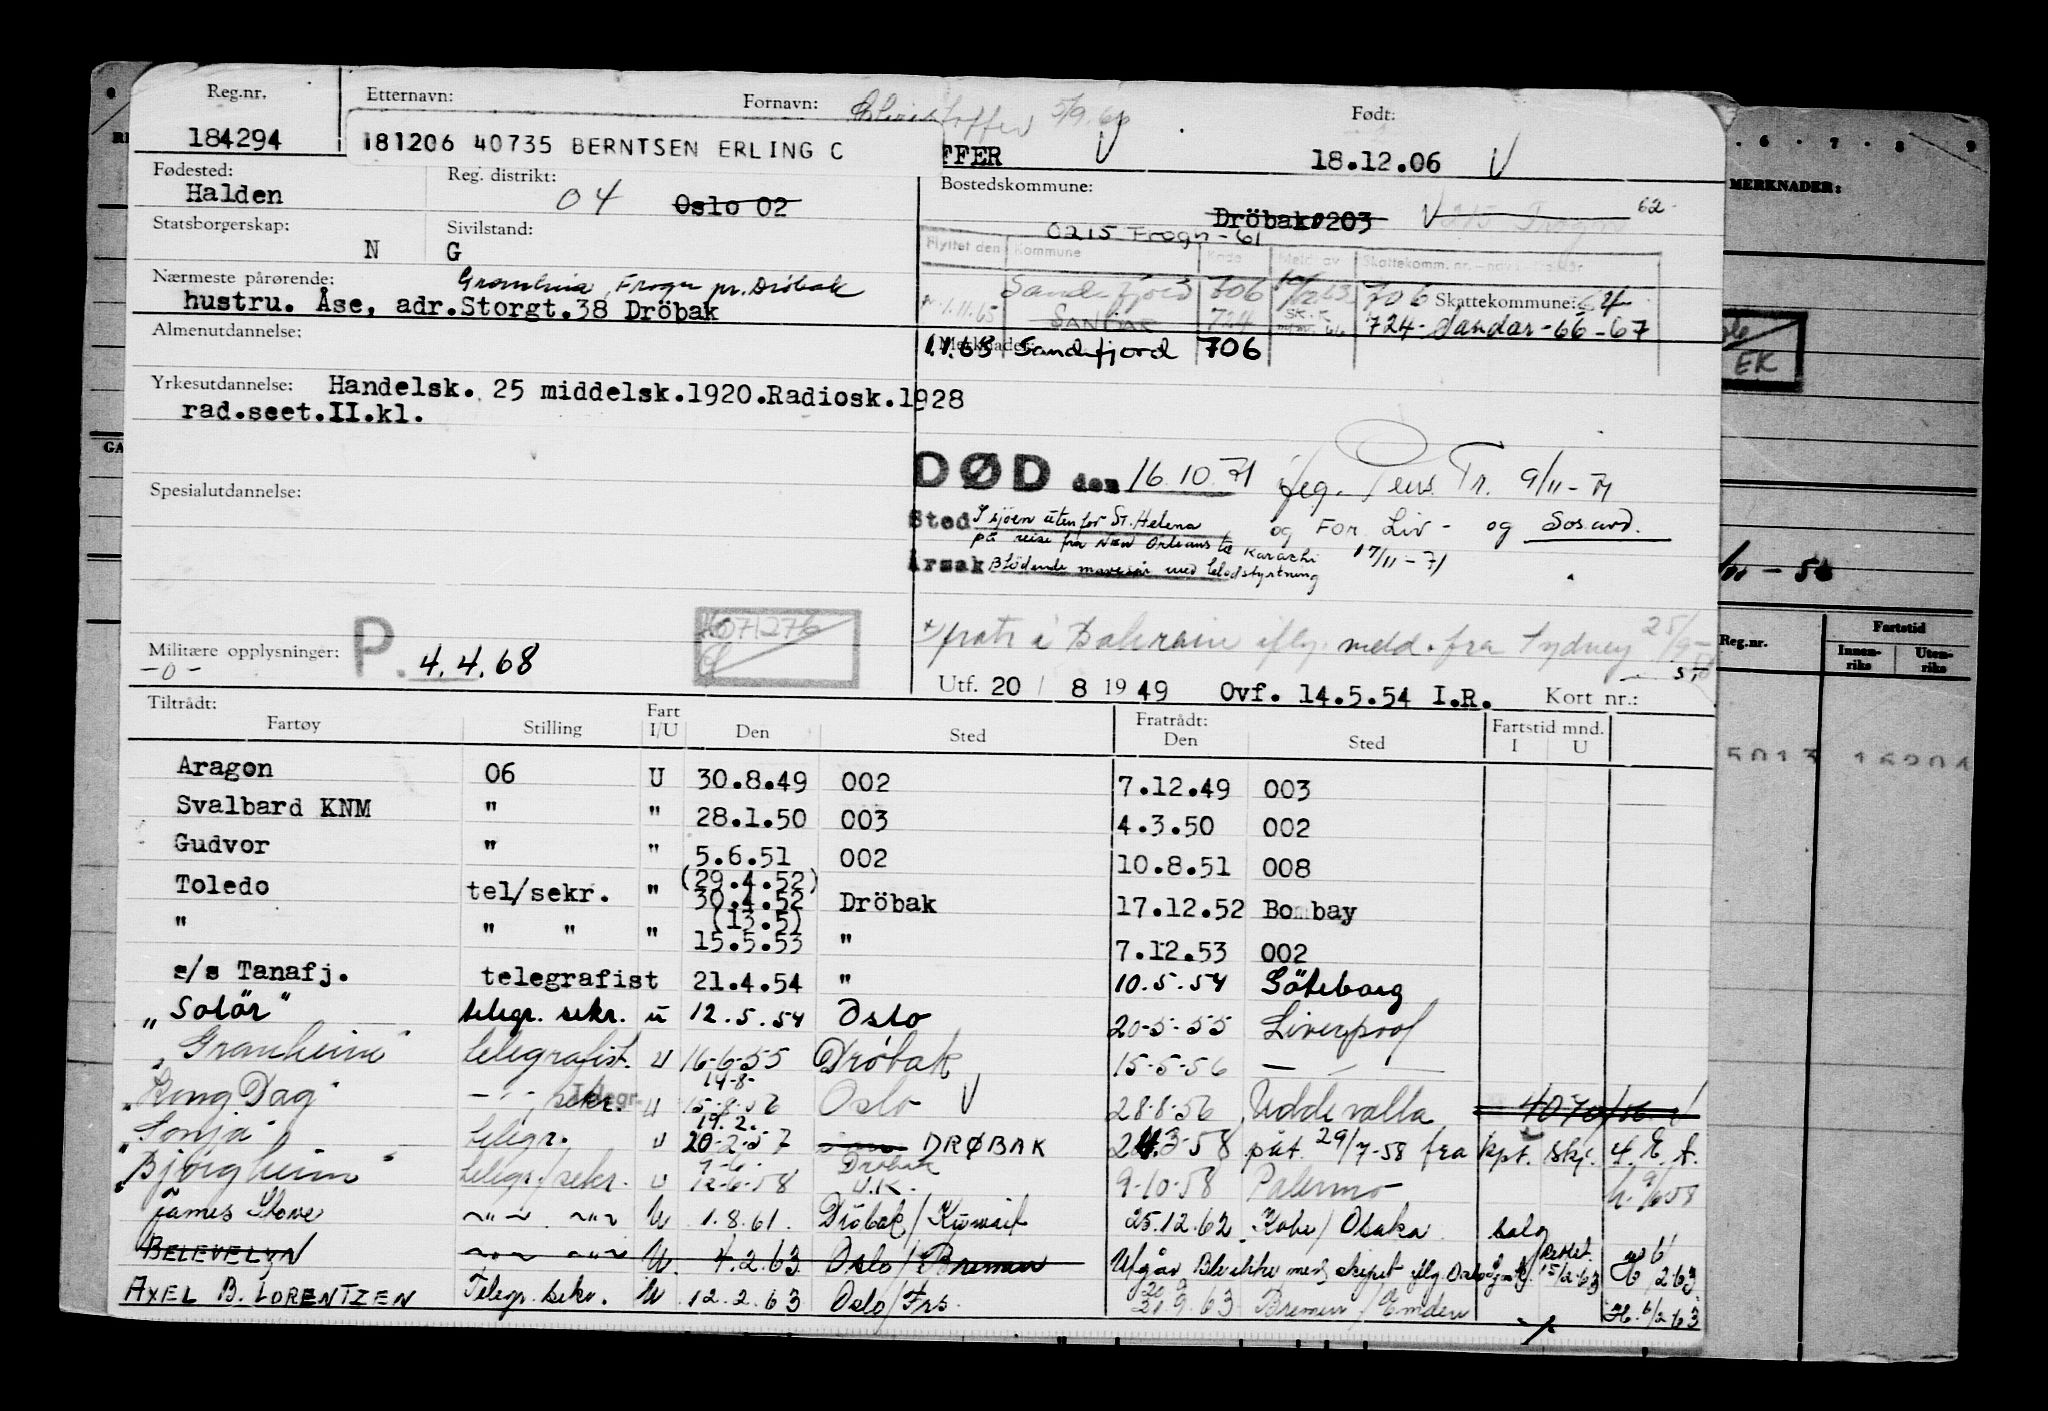 Reg.nr. Etternavn: Fornavn: 5/9.66 Født:
184294 181206 40735 BERNTSEN ERLING C FFER V 18.12.06 V
Fødested: Reg. distrikt: Bostedskommune: MERKNADER:
Halden 04 Oslo 02 Dröbak 0203 62
Statsborgerskap: Sivilstand: 0215 Frogn - 61
N G
Flyttet den Kommune Kode Meld av
Nærmeste pårørende: Granheim, Frogn pr. Dröbak
Sandefjord 706 706 Skattekommune: 64
hustru. Åse, adr.Storgt.38 Dröbak
1.11.65 SANDAR 724 724 - Sandar - 66 - 67
Almenutdannelse: Merknader:
1.1.68 Sandefjord 706
Yrkesutdannelse: Handelsk. 25 middelsk.1920.Radiosk.1928 EK
rad.seet.II.kl.
DØD den 16.10.71 Pens. Tr. 9/11-71
Spesialutdannelse:
Sted I sjöen utenfor St. Helena og For Liv - og Sos.avd.
på reise fra New Orleans til Karachi 17/11-71
Årsak Blödende mavesår med blodstyrtning
Militære opplysninger: P. 4.4.68
- 0 -
fratr i Bahrain iflg. meld. fra Sydney 25/9-
Utf. 20 / 8 19 49 Ovf. 14.5.54 I.R. Kort nr.:
Reg.nr. Fartstid
Innenriks Utenriks
Tiltrådt: Fartøy Stilling Fart I/U Den Sted Fratrådt: Den Sted Fartstid mnd. I U
Aragon 06 U 30.8.49 002 7.12.49 003
Svalbard KNM " " 28.1.50 003 4.3.50 002
Gudvor " " 5.6.51 002 10.8.51 008
(29.4.52)
Toledo tel/sekr. " 30.4.52 Dröbak 17.12.52 Bombay
(13.5)
" " " " 15.5.53 " 7.12.53 002
s/s Tanafj. telegrafist 21.4.54 " 10.5.54 Göteborg
"Solör" telegr. sekr. u 12.5.54 Oslo 20-5-55 Liverpool
"Granheim" telegrafist. u 16-6-55 Dröbak 15-5-56 — — —
14-8-
"Kong Dag" - " - sekr. u 15-8-56 Oslo V 28-8-56 Uddevalla
19.2.
"Sonja" telegr. u 20-2-57 DRØBAK 24.3-58 påt. 29/7-58 fra kpt. skj.
9-6- Dröbak
"Bjørgheim" telegr./sekr. u 12-6-58 U.K. 9-10-58 Palermo 9/6-58
James Stove ~"~ ~"~ U 1.8.61. Dröbak/Kuwait 25.12.62 Kobe/Osaka salg
BELEVELYN ~"~ ~"~ U. 4.2.63 Oslo/Bremen Utgår Ble ikke med skipet iflg. 15/2-63
20.9
AXEL B. LORENTZEN Telegr. sekr. U 12.2.63 Oslo/Frs. 21.9.63 Bremen/Emden 6/2-63